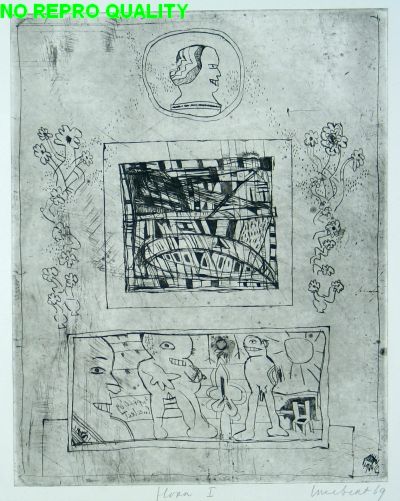 NO REPRO QUALITY
Flora I Lucebert 69